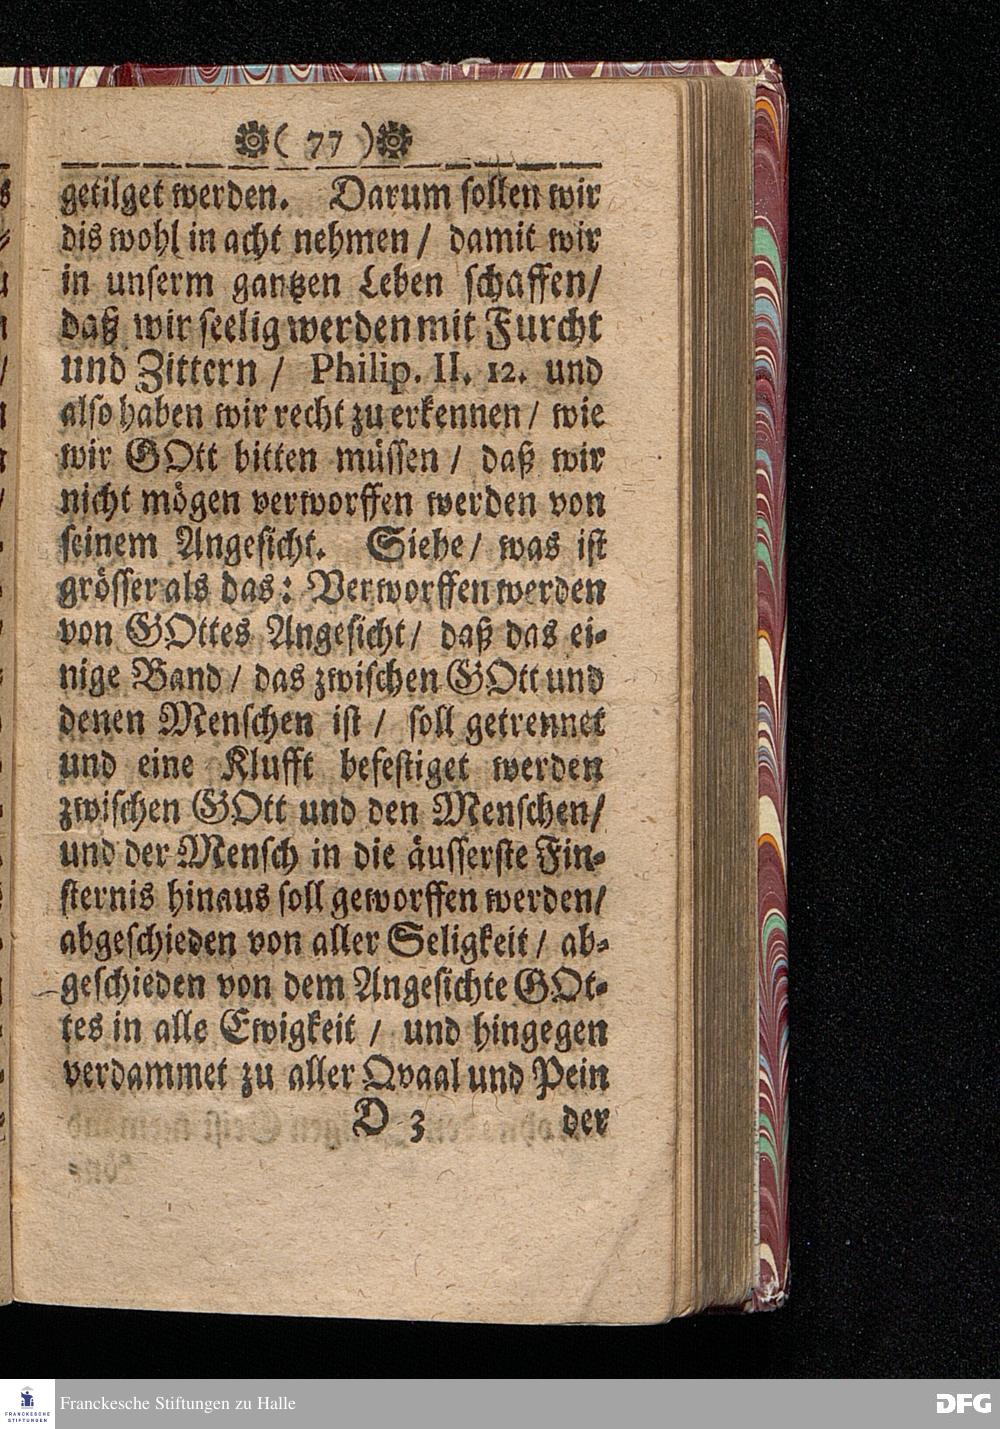 ( 77 )
getilget werden. Darum sollen wir
dis wohl in acht nehmen / damit wir
in unserm gantzen Leben schaffen /
daß wir seelig werden mit Furcht
und Zittern / Philip. II. 12. und
also haben wir recht zu erkennen / wie
wir GOtt bitten müssen / daß wir
nicht mögen verworffen werden von
seinem Angesicht. Siehe / was ist
grösser als das: Verworffen werden
von GOttes Angesicht / daß das ei-
nige Band / das zwischen GOtt und
denen Menschen ist / soll getrennet
und eine Klufft befestiget werden
zwischen GOtt und den Menschen /
und der Mensch in die äusserste Fin-
sternis hinaus soll geworffen werden /
abgeschieden von aller Seligkeit / ab-
geschieden von dem Angesichte GOt-
tes in alle Ewigkeit / und hingegen
verdammet zu aller Qvaal und Pein
D 3 der
FRANCKESCHE
STIFTUNGEN
Franckesche Stiftungen zu Halle
DFG